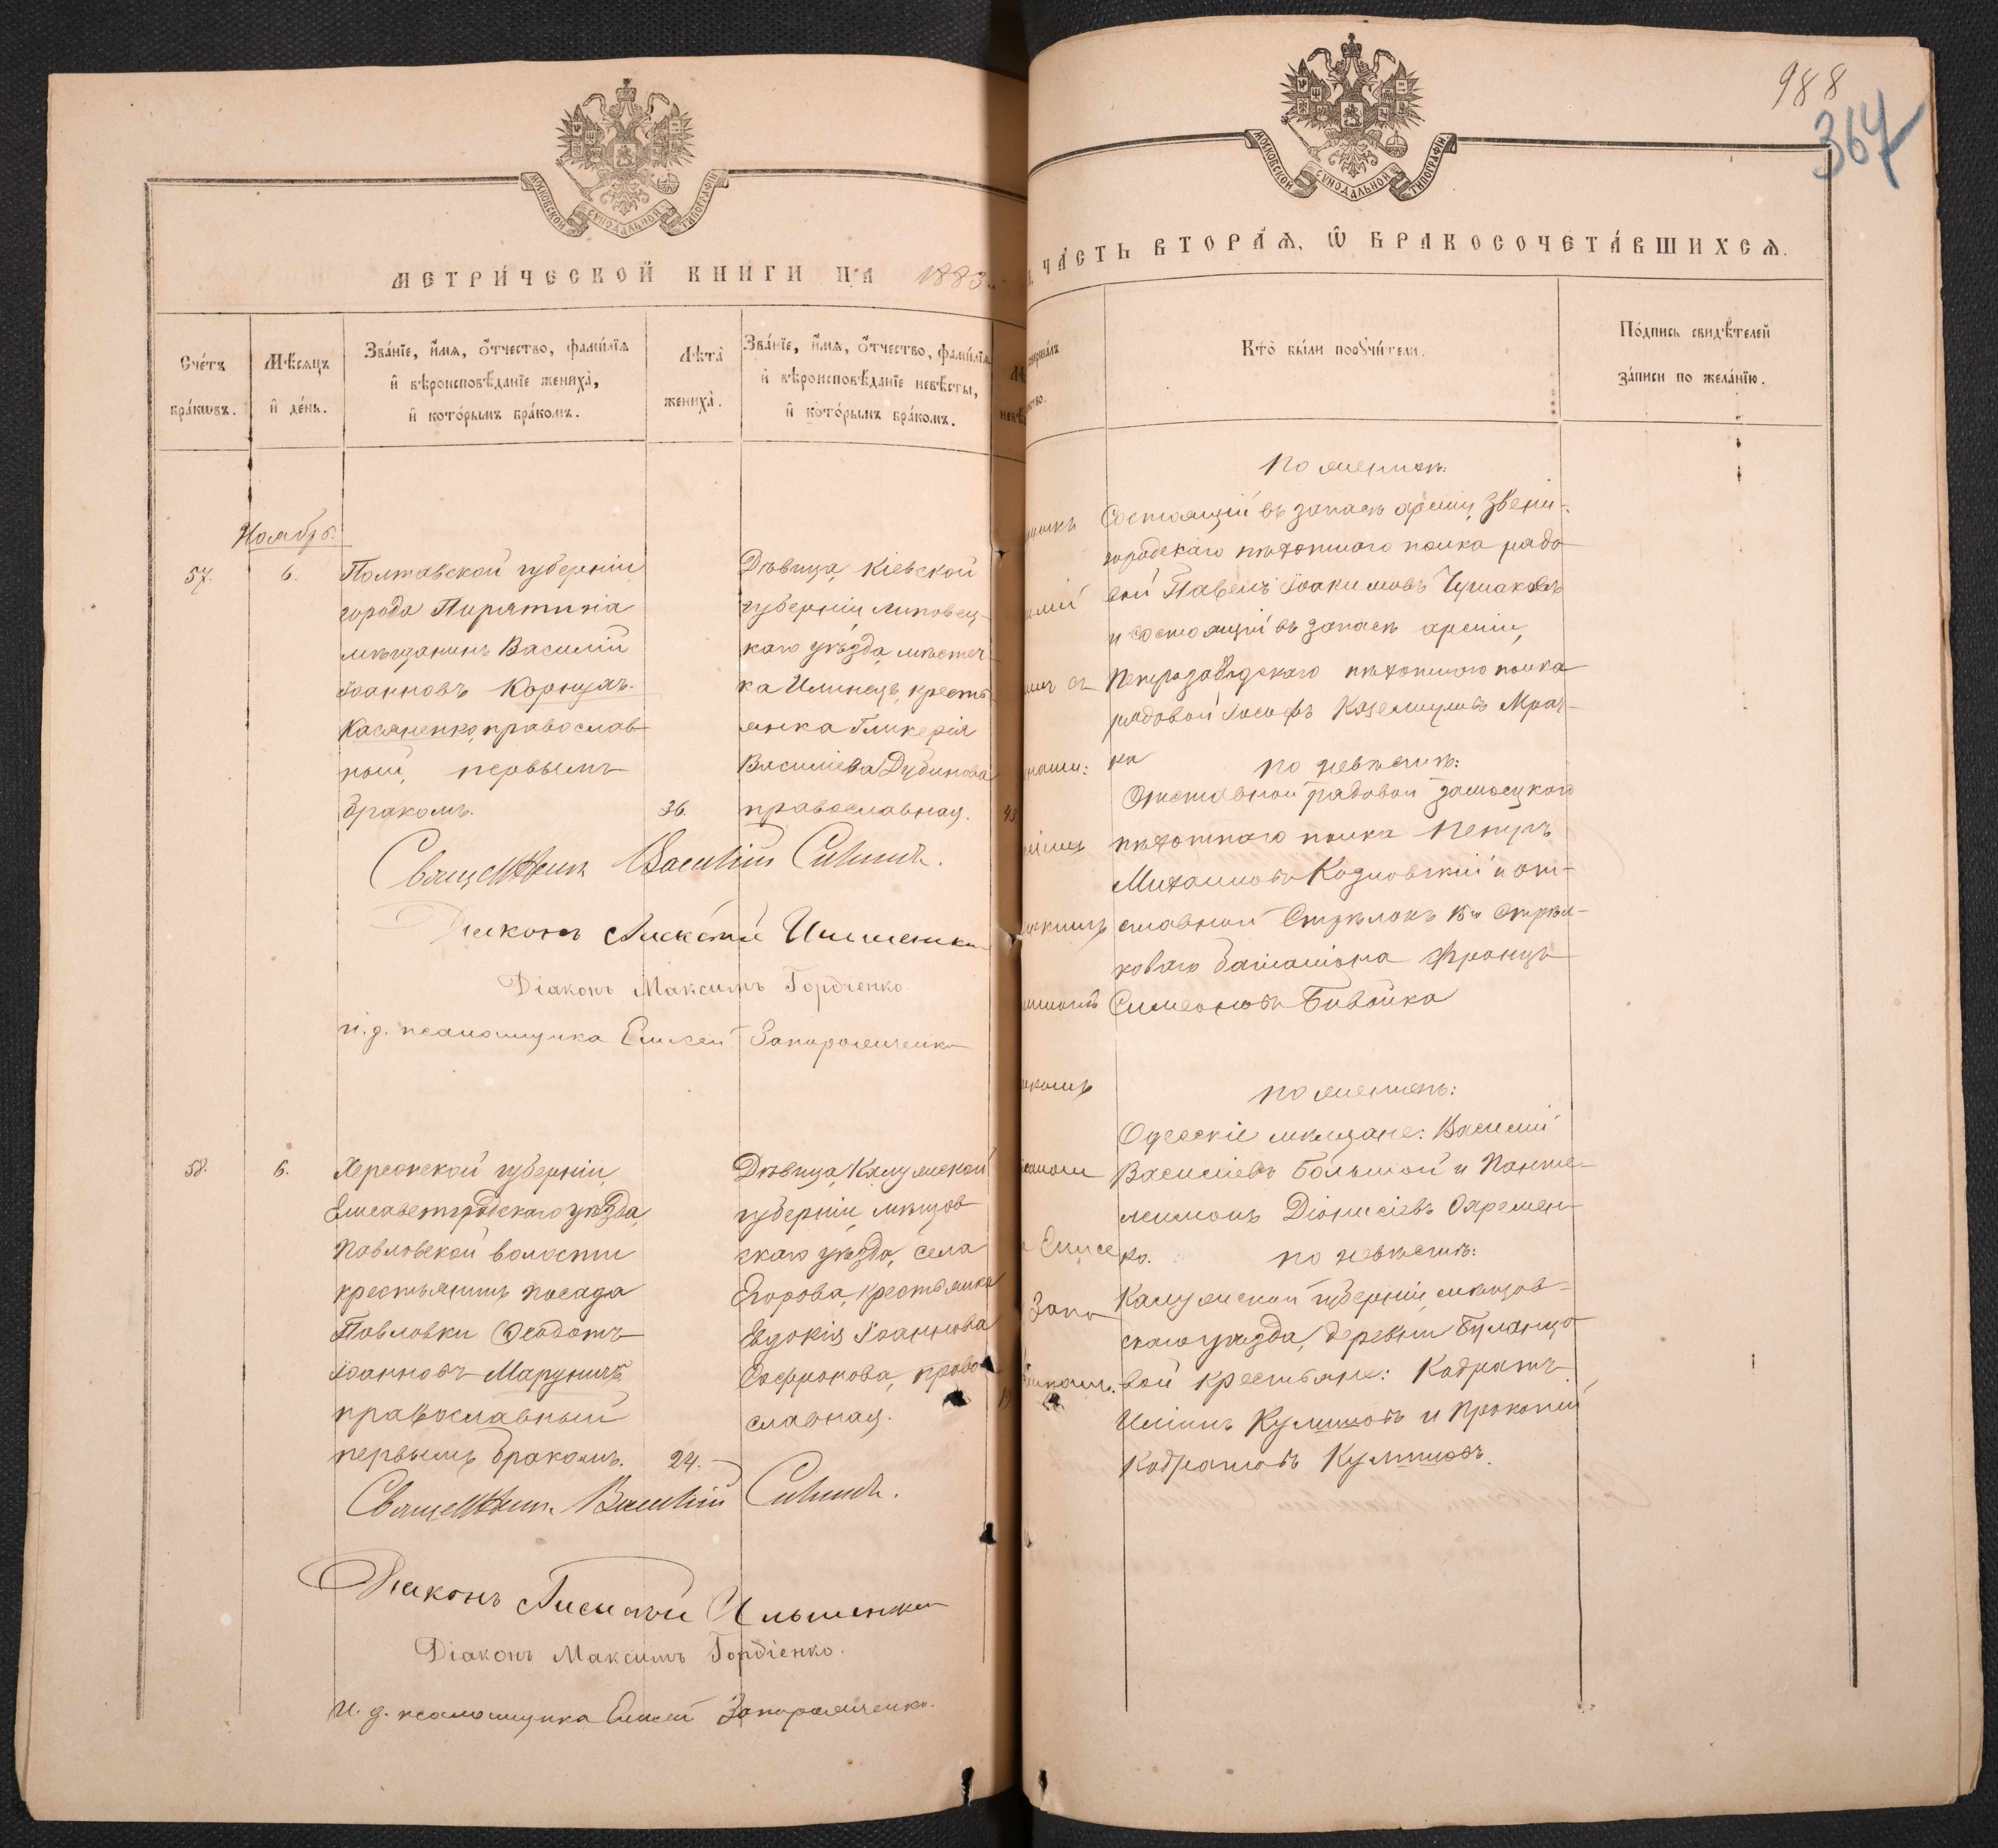 МОСКОВСКОЙ СУНОДАЛЬНОЙ ТИПОГРАФІИ.
МЕТРИ́ЧЕСКОЙ КНИГИ НА 1883
Сче́тъ бра́кωвъ.
Мѣ́сяцъ и҆ де́нь.
Зва́нїе, и҆́мя, ѻ҆́тчество, фами́лїя
и҆ вѣроисповѣ́данїе жениха̀,
и҆ кото́рымъ бра́комъ.
Лѣ́та жениха̀.
Зва́нїе, и҆́мя, ѻ҆́тчество, фами́лїя
и҆ вѣроисповѣ́данїе невѣ́сты,
и҆ кото́рымъ бра́комъ.
Ноябрь.
57.
6.
Полтавской губерніи
города Пирятина
мѣщанинъ Василій
Іоанновъ
Касяненко, православ-
ный, первымъ
бракомъ.
36.
Дѣвица, Кіевской
губерніи Липовец-
каго уѣзда, мѣстеч-
ка Илинецъ, кресть-
янка Гликерія
Василіева Дубинова
православная.
Священникъ Василій
Діаконъ Алексѣй
Діаконъ Максимъ Гордіенко.
и. д. псаломщика Елисей Запорожченко
58.
6.
Херсонской губерніи,
Елисаветградскаго уѣзда,
Павловской волости
крестьянинъ посада
Павловки Ѳеодотъ
Іоанновъ
православный
первымъ бракомъ.
24.
Дѣвица, Калужской
губерніи, Мещов-
скаго уѣзда, села
Егорова, крестьянка
Евдокія Іоаннова
Софронова, право-
славная.
Священникъ Василій
Діаконъ Алексѣй
Діаконъ Максимъ Гордіенко.
И. д. псаломщика Елисей Запорожченко.
988
367
МОСКОВСКОЙ СУНОДАЛЬНОЙ ТИПОГРАФІИ.
ЧА́СТЬ ВТОРА́Я, Ѽ БРАКОСОЧЕТА́ВШИХСЯ.
Кто̀ бы́ли порꙋчи́тели.
По́дпись свидѣ́телей
за́писи по жела́нїю.
По женихѣ:
Состоящій въ запасѣ арміи, Звени-
городскаго пѣхотнаго полка рядо-
вой Павелъ Іоакимовъ
и состоящій въ запасѣ арміи,
Петрозаводскаго пѣхотнаго полка
рядовой Іосифъ
ка
По невѣстѣ:
Отставной рядовой Замосцкаго
пѣхотнаго полка Петръ
Михаиловъ Козловскій и от-
ставной Стрѣлокъ 15го Стрѣл-
коваго баталіона Францъ
Симеоновъ
По женихѣ:
Одесскіе мѣщане: Василій
Василіевъ Большой и Панте-
леимонъ Діонисіевъ Охремен-
ко.
По невѣстѣ:
Калужской губерніи, Мещов-
скаго уѣзда, деревни
вой крестьяне: Кодратъ
Иліинъ и Прокопій
Кодратовъ